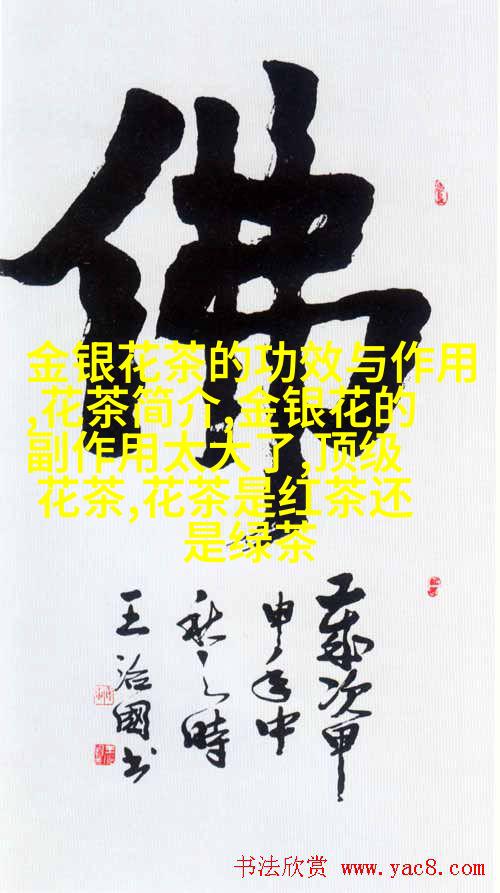 佛
金银花茶的功效与作用
,花茶简介,金银花的
副作用太大了,顶级
花茶,花茶是红茶还
是绿茶
歲次甲
申年中
秋之時
王治國书
书法欣赏 www.yac8.com